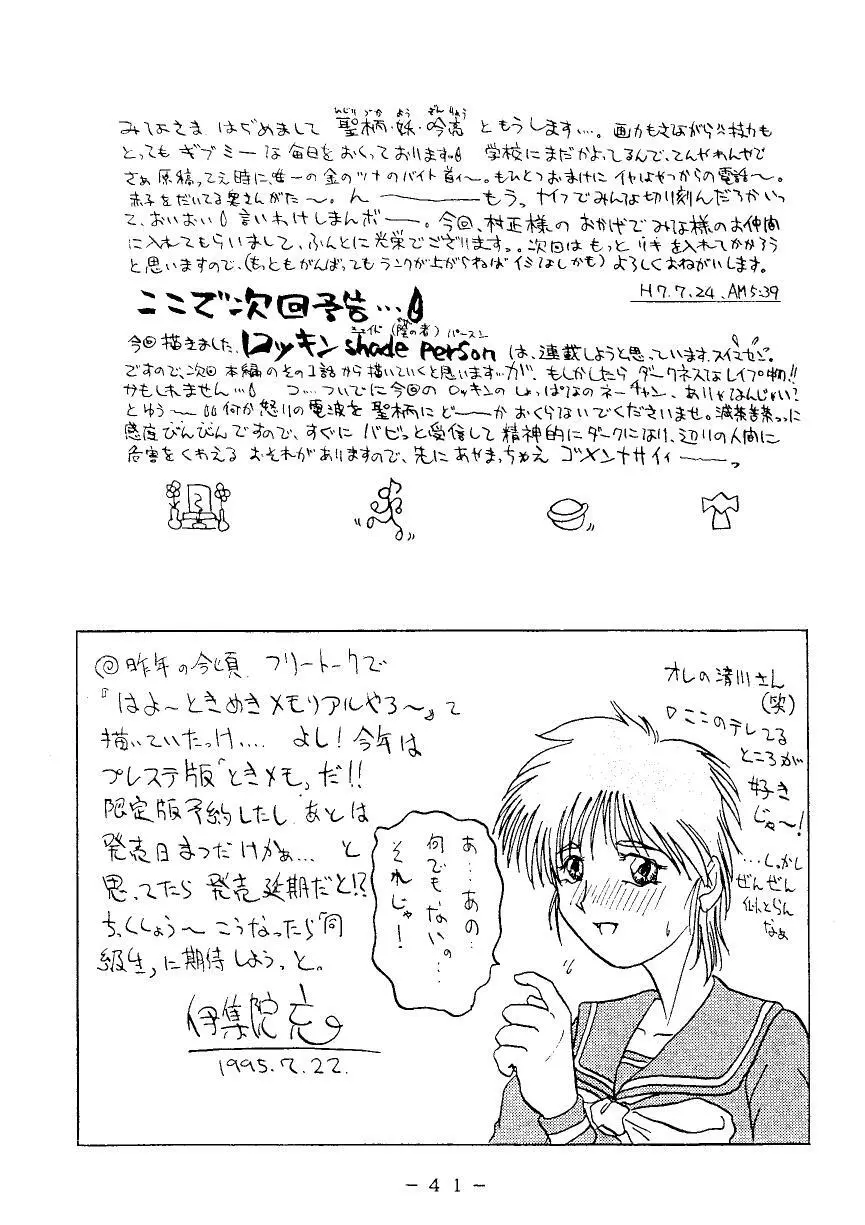 みなさま はぢめまして 聖柄・妖・吟亮 ともうします…。画力もさながら技力も
とっても ギブミーな毎日をおくっております。 学校にまだかよってるんで、てんやわんやで
さぁ 原稿ってえ時に、唯一の金のツナのバイト首ィ〜。もひとつおまけに イヤなやつからの電話〜。
赤子をだいてる奥さんがた〜。ん ――― もう。ナイフでみんな切り刻んだろかいっ
て、おいおい 言いわけしまんボ――。今回、村正様の おかげで みな様のお仲間
に入れてもらいまして、ふんとに光栄でございます。。次回は もっと リキを入れてかかろう
と思いますので、(もっともがんばってもランクが上がらねばイミなしかも) よろしくおねがいします。
H7.7.24. AM5:39
ここで次回予告…
今回描きました、ロッキン shade person は、連載しようと思っています。スイマセン。
シェイド (陰の者) パースン
ですので、次回 本編のその1話から描いていくと思います…が、もしかしたら ダークネスなレイプ物!!
かもしれません… つ…ついでに今回の ロッキンの しょっぱなのネーチャン、ありゃなんじゃい?
とゆう〜 何か怒りの電波を聖柄にど――かおくらないでくださいませ。滅茶苦茶っに
感度びんびんですので、すぐに バビッと受信して 精神的にダークになり、辺りの人間に
危害をくわえる おそれがありますので、先にあやまっちゃえ ゴメンナサイィ――っ
◎昨年の今頃 フリートークで
『はよ〜ときめきメモリアルやろ〜』て
描いていたっけ…. よし!今年は
プレステ版「ときメモ」だ!!
限定版予約したし、あとは
発売日まつだけかぁ… と
思ってたら 発売延期だと!?
ちっくしょう〜 こうなったら「同
級生」に期待しようっと。
伊集院
1995.7.22.
あ…あの…
何でもないの…
それじゃ!
オレの清川さん
(笑)
ここのテレてる
ところが
好き
じゃ〜!
…しっかし
ぜんぜん
似とらん
なぁ
- 41 -